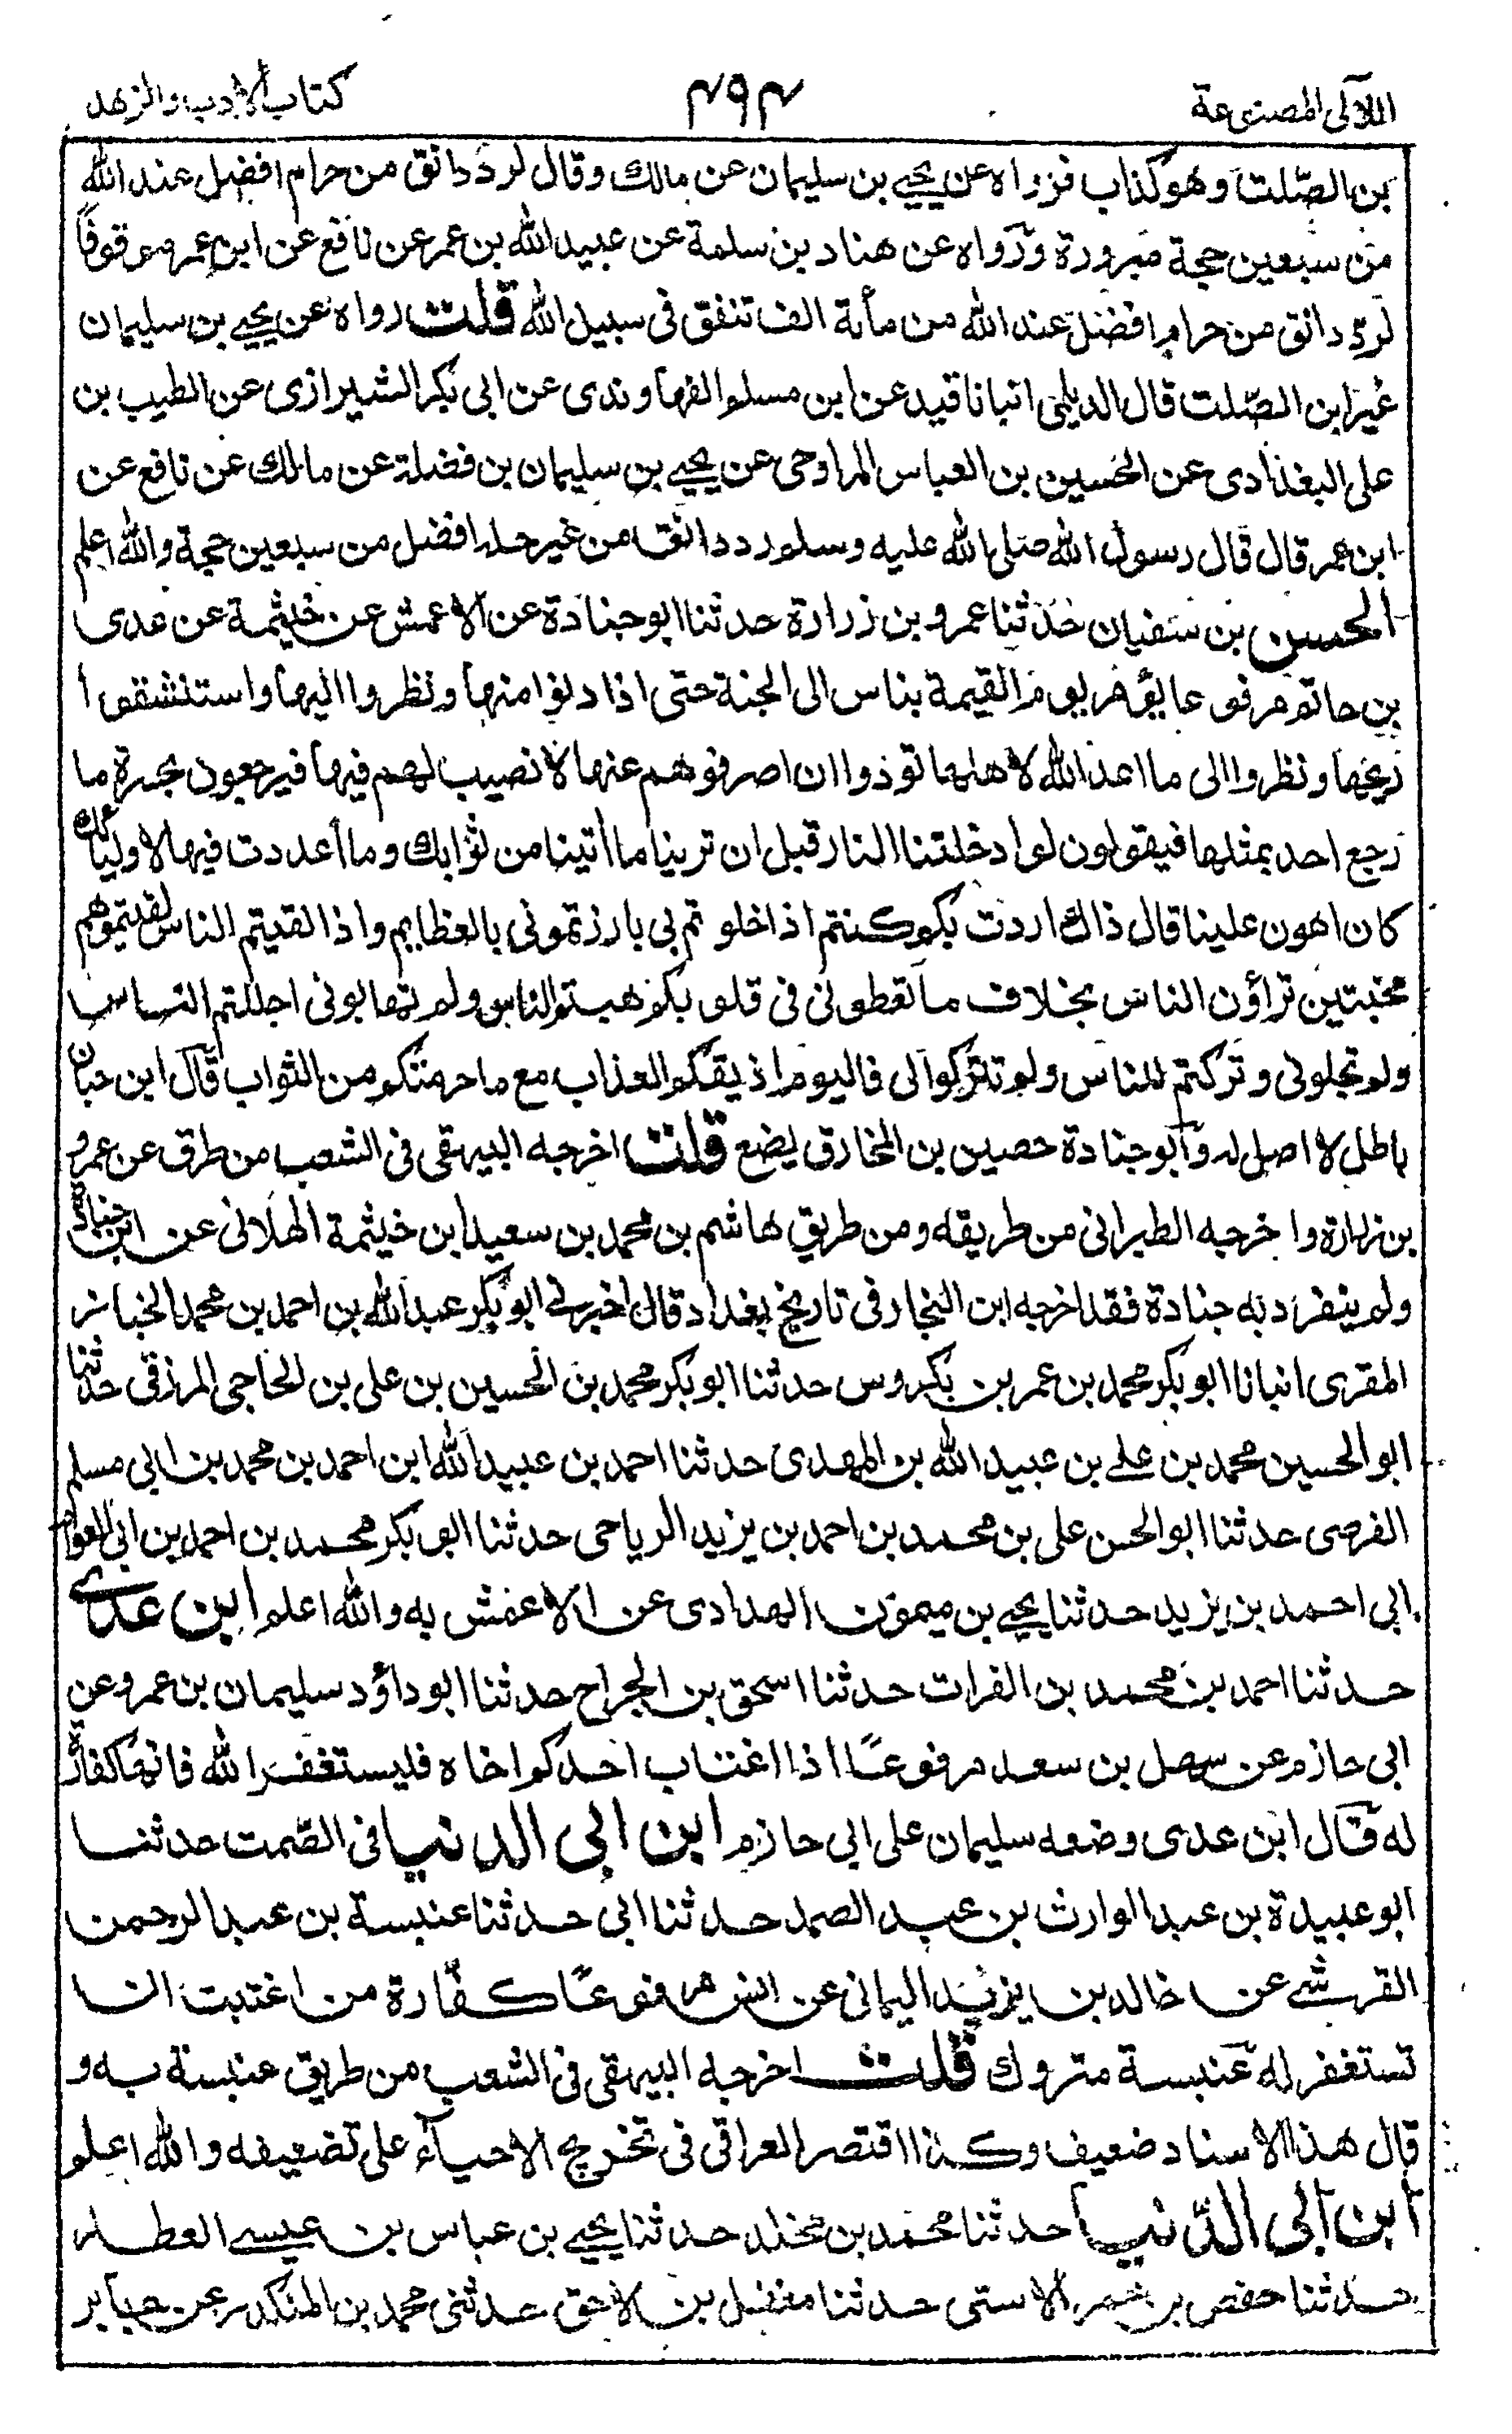 اللآلی المصنوعة ۴۹۴ كتاب الادب والزهد
بن الصّلت وهو كذاب فرواه عن يحيى بن سليمان عن مالك وقال لردّ دانق من حرام افضل عند الله
من سبعين حجة مبرورة ورواه عن هناد بن سلمة عن عبيد الله بن عمر عن نافع عن ابن عمر موقوفًا
لردّ دانق من حرام افضل عند الله من مأية الف تنفق فى سبيل الله قلت رواه عن يحيى بن سليمان
غير ابن الصّلت قال الديلمى انبانا قيد عن ابن مسلم النهاوندى عن ابى بكر الشيرازى عن الطيب بن
على البغدادى عن الحسين بن العباس المراوحى عن يحيى بن سليمان بن فضلة عن مالك عن نافع عن
ابن عمر قال قال رسول الله صلى الله عليه وسلم رد دانق من غير حله افضل من سبعين حجة والله اعلم
الحسن بن سفيان حدثنا عمرو بن زرارة حدثنا ابو جنادة عن الاعمش عن خيثمة عن عدى
بن حاتم مرفوعا يؤمر يوم القيمة بناس الى الجنة حتى اذا دنوا منها ونظروا اليها واستنشقوا
ريحها ونظروا الى ما اعد الله لاهلها نودوا ان اصرفوهم عنها لا نصيب لهم فيها فيرجعون بحسرة ما
رجع احد بمثلها فيقولون لو ادخلتنا النار قبل ان ترينا ما أتينا من ثوابك وما أعددت فيها لاوليائك
كان اهون علينا قال ذاك اردت بكم كنتم اذا خلوتم بى بارزتمونى بالعظايم واذا لقيتم الناس لقيتموهم
مخبتين تراؤن الناس بخلاف ما تعطونى فى قلوبكم هبتم الناس ولم تهابونى اجللتم الناس
ولم تجلونى وتركتم للناس ولم تتركوا لى فاليوم اذيقكم العذاب مع ما حرمتكم من الثواب قال ابن حبان
باطل لا اصل له وابو جنادة حصين بن المخارق يضع قلت اخرجه البيهقى فى الشعب من طرق عن عمرو
بن زرارة واخرجه الطبرانى من طريقه ومن طريق هاشم بن محمد بن سعيد ابن خيثمة الهلانى عن ابن جنادة
ولم ينفرد به جنادة فقد اخرجه ابن النجار فى تاريخ بغداد قال اخبرنى ابو بكر عبد الله بن احمد بن محمد الخباز
المقرى انبانا ابو بكر محمد بن عمر بن بكروس حدثنا ابو بكر محمد بن الحسين بن على بن الحاجى المرزقى حدثنا
ابو الحسين محمد بن على بن عبيد الله بن المهدى حدثنا احمد بن عبيد الله ابن احمد بن محمد بن ابى مسلم
الفرضى حدثنا ابو الحسن على بن محمد بن احمد بن يزيد الرياحى حدثنا ابو بكر محمد بن احمد بن ابى العوام
ابى احمد بن يزيد حدثنا يحيى بن ميمون الهدادى عن الاعمش به والله اعلم ابن عدى
حدثنا احمد بن محمد بن الفرات حدثنا اسحق بن الجراح حدثنا ابو داؤد سليمان بن عمرو عن
ابى حازم عن سهل بن سعد مرفوعًا اذا اغتاب احدكم اخاه فليستغفر الله فانها كفارة
له قال ابن عدى وضعه سليمان على ابى حازم ابن ابى الدنيا فى الصّمت حدثنا
ابو عبيدة بن عبد الوارث بن عبد الصمد حدثنا ابى حدثنا عنبسة بن عبد الرحمن
القرشى عن خالد بن يزيد اليمانى عن انس مرفوعًا كفّارة من اغتبت ان
تستغفر له عنبسة متروك قلت اخرجه البيهقى فى الشعب من طريق عنبسة به و
قال هذا الاسناد ضعيف وكذا اقتصر العراقى فى تخريج الاحيآء على تضعيفه والله اعلم
ابن ابى الدّنيا حدثنا محمد بن مخلد حدثنا يحيى بن عباس بن عيسى العطار
حدثنا حفص بن عمر الاستى حدثنا مفضل بن لاحق حدثنى محمد بن المنكدر عن جابر